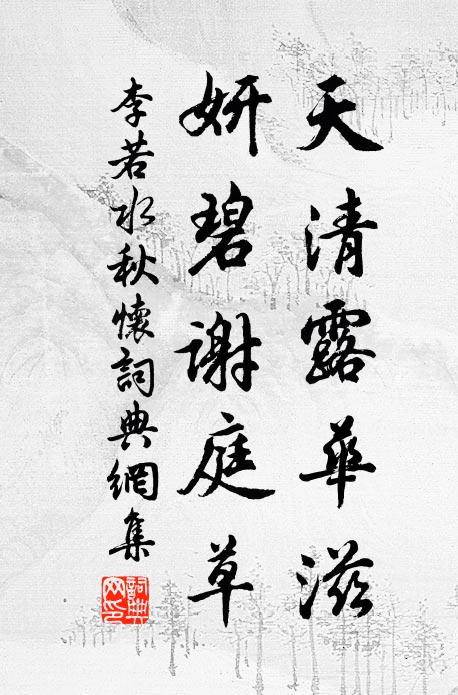 天清露華滋
妍碧謝庭草
李若水秋懷詞典網集
詞典網印